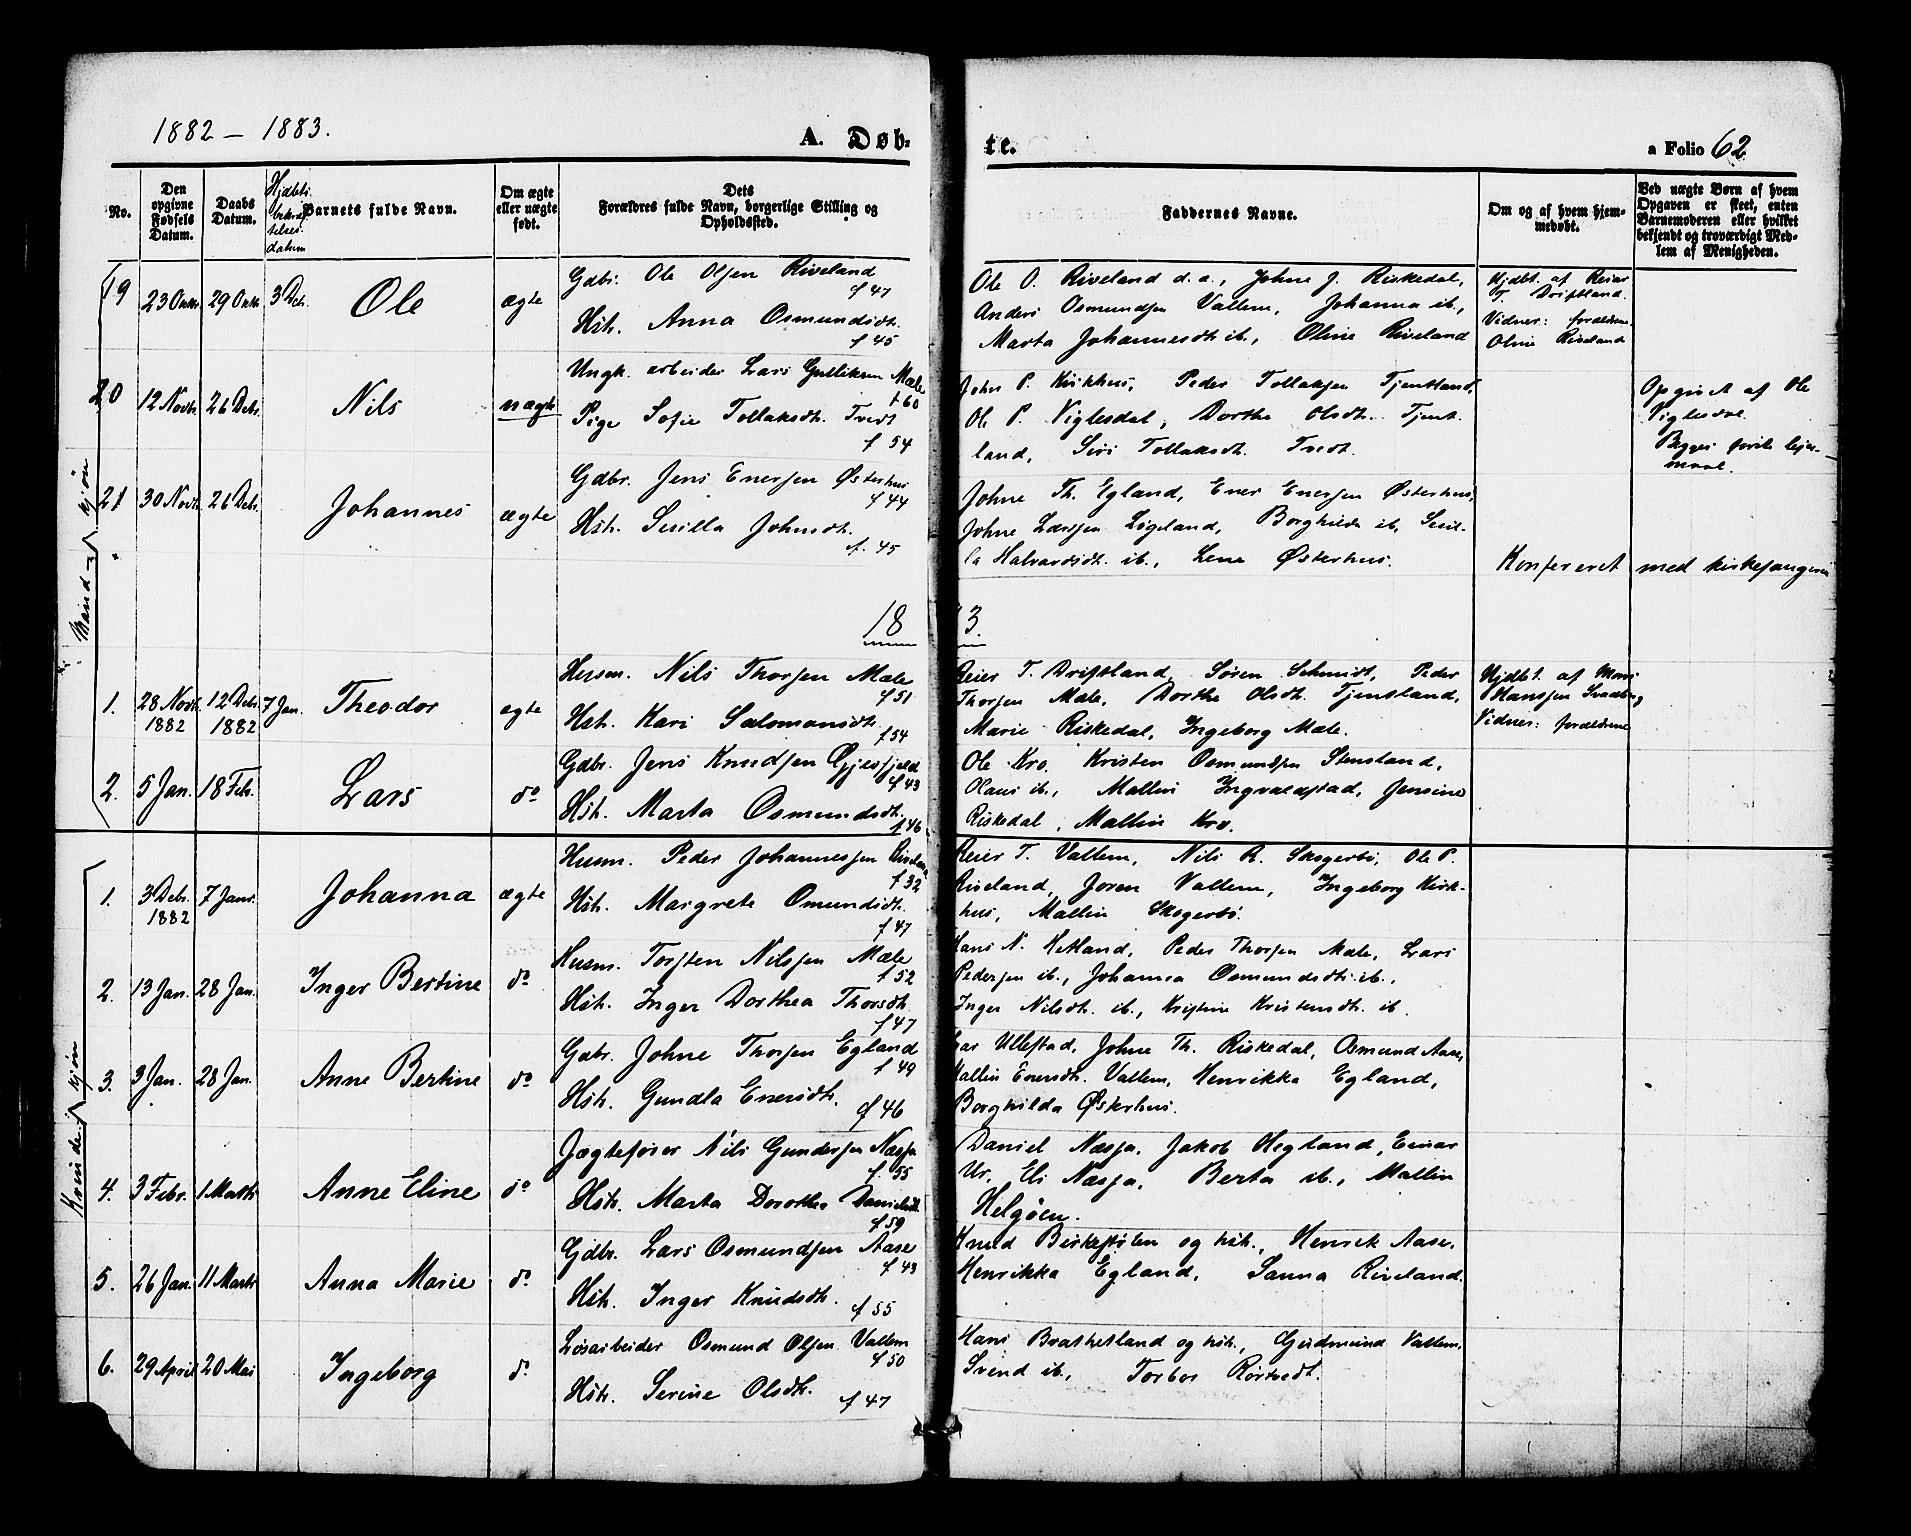 1882 – 1883.
A. Døb-
te.
a Folio 62
No.
Den opgivne Fødsels Datum.
Daabs Datum.
Hjdbts. bekræftelses datum
Barnets fulde Navn.
Om ægte eller uægte født.
Dets Forældres fulde Navn, borgerlige Stilling og Opholdssted.
Faddernes Navne.
Om og af hvem hjemmedøbt.
Ved uægte Børn af hvem Opgaven er skeet, enten Barnemoderen eller hvilket bekjendt og troværdigt Medlem af Menigheden.
Mandkjøn
19 23 Oktr. 29 Oktr. 3 Dcb. Ole ægte
Gdbr. Ole Olsen Riveland f 47
Hst. Anna Osmundsdt. f 45
Ole O. Riveland d.a., Johne J. Riskedal,
Anders Osmundsen Vallem, Johanna ib.,
Marta Johannesdt. ib., Oline Riveland
Hjdbt. af Reiar
T. Driftland.
Vidner: forældrene
Oline Riveland
20 12 Novb. 26 Debr. Nils uægte
Ungk. arbeider Lars Gulliksen Mæle f 60
Pige Sofie Tollaksdt. Tvedt f 54
John P. Kirkhus, Peder Tollaksen Tjentland,
Ole P. Viglesdal, Dorthe Olsdt. Tjent-
land, Siri Tollaksdt. Tvedt.
Opgivet af Ole
Viglesdal
Begges første leier-
maal
21 30 Novb. 26 Debr. Johannes ægte
Gdbr. Jens Enersen Østerhus f 44
Hst. Sisilla Johnsdt. f. 45
Johne Th. Egland, Ener Enersen Østerhus,
Johne Larssen Ligeland, Borghilda ib. Sisil-
la Halvardsdt. ib., Lene Østerhus.
Konfereret med kirkesangeren
1883.
1. 28 Novb. 1882 12 Debr. 1882 7 Jan. Theodor ægte
Husm. Nils Thorsen Mæle f 51
Hst. Kari Salomonsdt. f 54
Reier T. Driftland, Søren Schmidt, Peder
Thorsen Mæle, Dorthe Olsdt. Tjentland,
Marie Riskedal, Ingeborg Mæle.
Hjdbt. af
Hanssen
Vidner: forældrene
2. 5 Jan. 18 Febr. Lars do
Gdbr. Jens Knudsen Gjesfjeld f 43
Hst. Marta Osmundsdt. f 46
Ole Kro. Kristen Osmundsen Stensland,
Hans ib., Mallin Ingvaldstad, Jensine
Riskedal, Mallin Kro.
Kvindekjøn
1. 3 Debr. 1882 7 Janr. Johanna ægte
Husm. Peder Johannessen Riveland f 32
Hst. Margrete Omundsdt. f 47
Reier T. Vallem, Nils R. Skogerbø, Ole P.
Riveland, Joren Vallem, Ingeborg Kirk-
hus, Mallin Skogerbø.
2. 13 Jan. 28 Jan. Inger Bertine do
Husm. Torsten Nilssen Mæle f 52
Hst. Inger Dorthea Thorsdt. f 47
Hans N. Hetland, Peder Thorsen Mæle, Lars
Pedersen ib., Johanna Osmundsdt. ib.,
Inger Nilsdt. ib., Kristine Kristensdt. ib.
3. 3 Jan. 28 Jan. Anne Bertine do
Gdbr. Johne Thorsen Egland f 49
Hst. Gundla Enersdt. f 46
Ullestad, Johne Th. Riskedal, Osmund Aase,
Mallin Enersdt. Vallem, Henrikka Egland,
Borghilda Østerhus.
4. 3 Febr. 1 Marts Anne Eline do
Jægtefører Nils Gundersen Næsja f. 55
Hst. Marta Dorothea Danielsdt. f 59
Daniel Næsja, Jakob Hegland, Einar
Ur, Eli Næsja, Berta ib., Mallin
Helgøen.
5. 26 Jan. 11 Marts Anna Marie do
Gdbr. Lars Osmundsen Aase f 43
Hst. Inger Knudsdt. f 55
Knud Birkestølen og hst., Henrik Aase,
Henrikka Egland, Sanna Riveland.
6. 29 April 20 Mai Ingeborg do
Løsarbeider Osmund Olsen Vallem f 50
Hst. Serine Olsdt. f 47
Hans Brathetland og hst., Gudmund Vallem,
Svend ib., Torbor Rørtvedt.